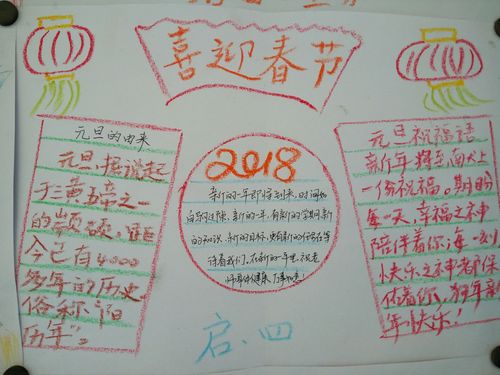 喜迎春节
元旦的由来
元旦,据说起
于三黄五帝之一
的颛顼,距
今已有4000
多年的历史。
俗称“阳
历年”。
2018
新的一年即将到来,时间如
白驹过隙,新的一年,有新的学期新
的知识,新的目标,更有新的任务在等
待着我们。在新的一年里,祝老
师身体健康,万事如意
元旦祝福语
新年将至,南犬上
一份祝福。期盼
每一天,幸福之神
陪伴着你;每一刻
快乐之神都保
佑着你,狗年喜
年快乐!
启、四